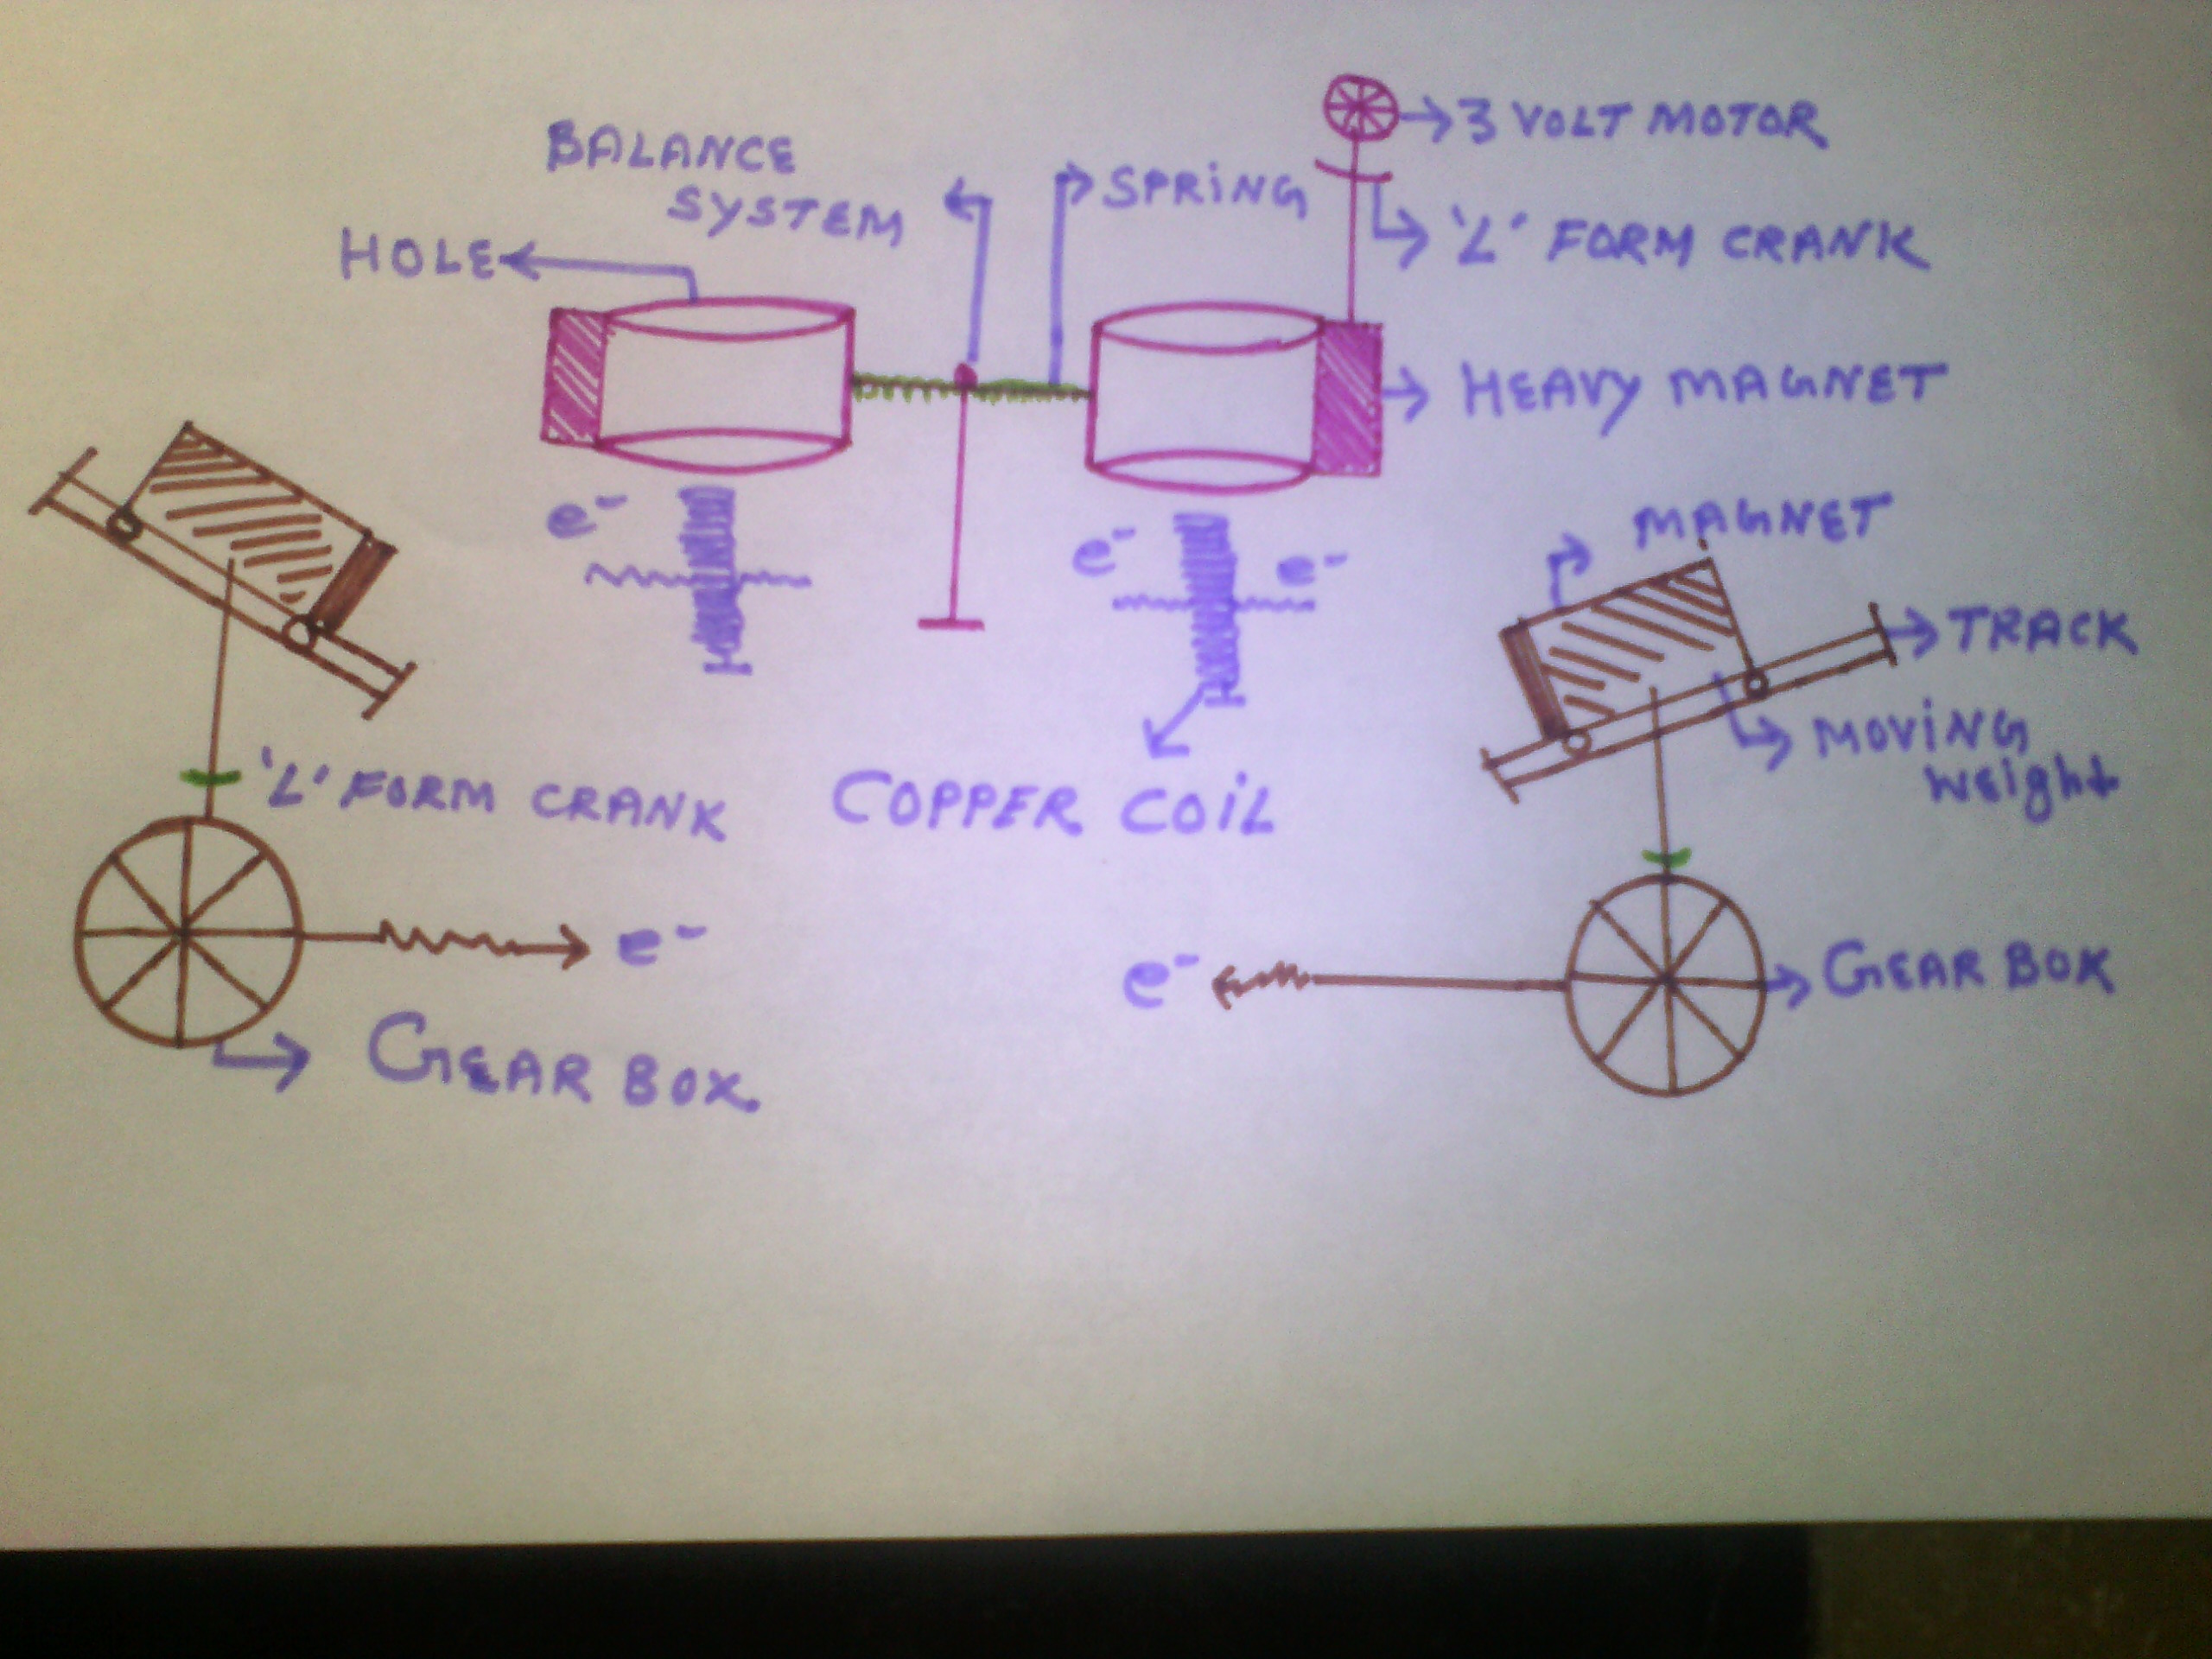 BALANCE
SYSTEM
HOLE
SPRiNG
3 VOLT MOTOR
'L' FORM CRANK
HEAVY MAGNET
e-
e-
e-
MAGNET
TRACK
MOViNG
weight
'L' FORM CRANK
COPPER COiL
e-
e-
GEAR BOX
GEAR BOX.